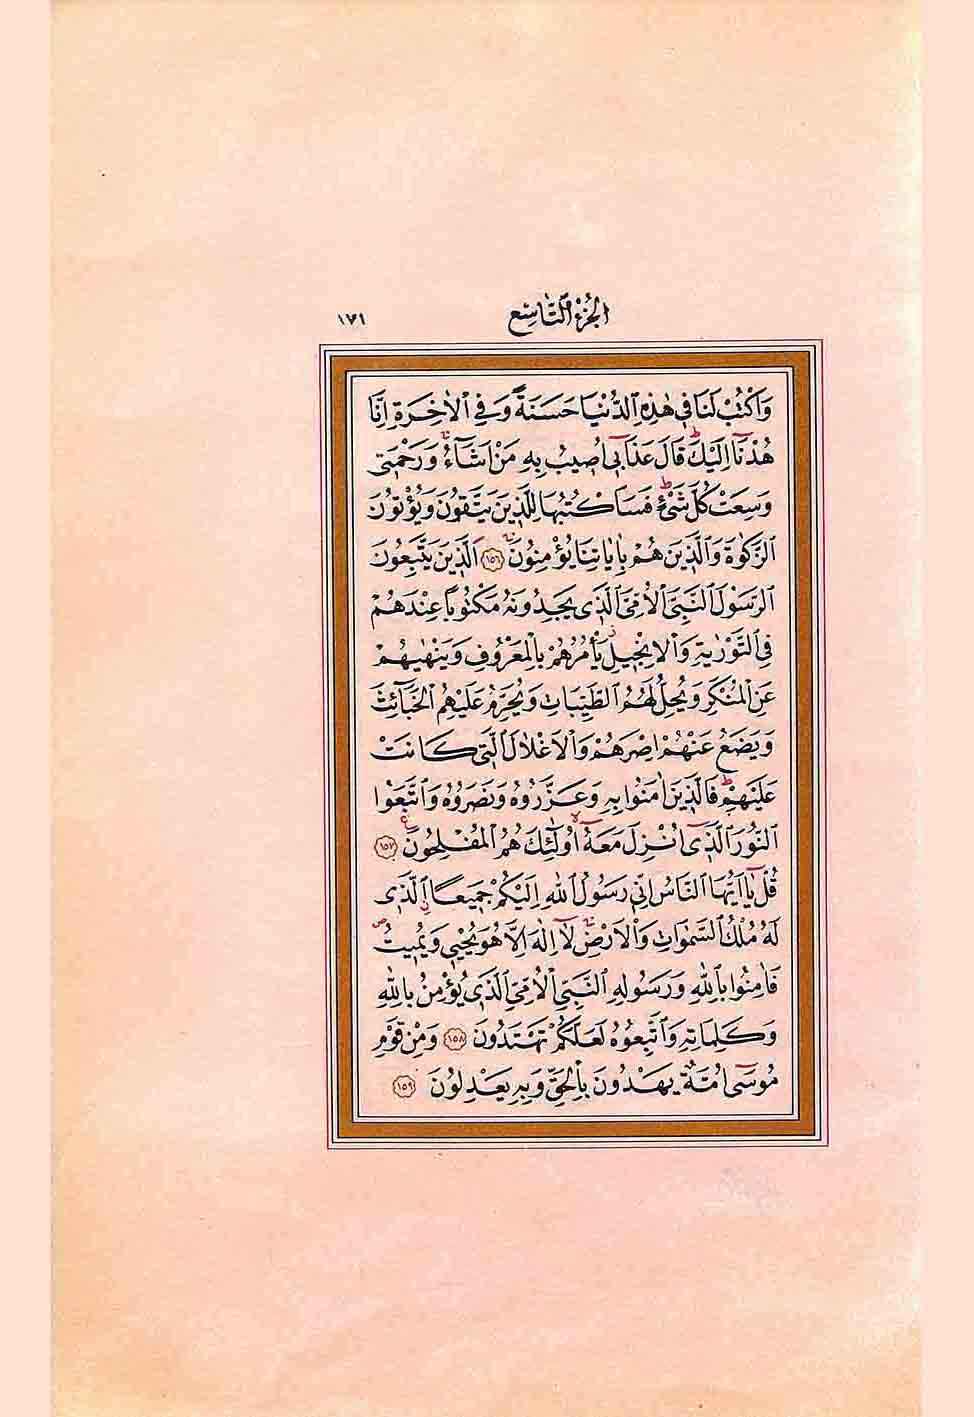 الجزء التاسع ١٧١
وَاكْتُبْ لَنَا فِي هٰذِهِ الدُّنْيَا حَسَنَةً وَفِي الْاٰخِرَةِ اِنَّا
هُدْنَٓا اِلَيْكَۜ قَالَ عَذَابٖٓي اُصٖيبُ بِهٖ مَنْ اَشَٓاءُۚ وَرَحْمَتٖي
وَسِعَتْ كُلَّ شَيْءٍۜ فَسَاَكْتُبُهَا لِلَّذٖينَ يَتَّقُونَ وَيُؤْتُونَ
الزَّكٰوةَ وَالَّذٖينَ هُمْ بِاٰيَاتِنَا يُؤْمِنُونَۚ ﴿١٥٦﴾ اَلَّذٖينَ يَتَّبِعُونَ
الرَّسُولَ النَّبِيَّ الْاُمِّيَّ الَّذٖي يَجِدُونَهُ مَكْتُوبًا عِنْدَهُمْ
فِي التَّوْرٰيةِ وَالْاِنْجٖيلِۘ يَأْمُرُهُمْ بِالْمَعْرُوفِ وَيَنْهٰيهُمْ
عَنِ الْمُنْكَرِ وَيُحِلُّ لَهُمُ الطَّيِّبَاتِ وَيُحَرِّمُ عَلَيْهِمُ الْخَبَٓائِثَ
وَيَضَعُ عَنْهُمْ اِصْرَهُمْ وَالْاَغْلَالَ الَّتٖي كَانَتْ
عَلَيْهِمْۜ فَالَّذٖينَ اٰمَنُوا بِهٖ وَعَزَّرُوهُ وَنَصَرُوهُ وَاتَّبَعُوا
النُّورَ الَّذٖٓي اُنْزِلَ مَعَهُٓۙ اُو۬لٰٓئِكَ هُمُ الْمُفْلِحُونَࣖ ﴿١٥٧﴾
قُلْ يَٓا اَيُّهَا النَّاسُ اِنّٖي رَسُولُ اللّٰهِ اِلَيْكُمْ جَمٖيعًاۨ الَّذٖي
لَهُ مُلْكُ السَّمٰوَاتِ وَالْاَرْضِۚ لَٓا اِلٰهَ اِلَّا هُوَ يُحْيٖي وَيُمٖيتُۖ
فَاٰمِنُوا بِاللّٰهِ وَرَسُولِهِ النَّبِيِّ الْاُمِّيِّ الَّذٖي يُؤْمِنُ بِاللّٰهِ
وَكَلِمَاتِهٖ وَاتَّبِعُوهُ لَعَلَّكُمْ تَهْتَدُونَ ﴿١٥٨﴾ وَمِنْ قَوْمِ
مُوسٰٓى اُمَّةٌ يَهْدُونَ بِالْحَقِّ وَبِهٖ يَعْدِلُونَ ﴿١٥٩﴾